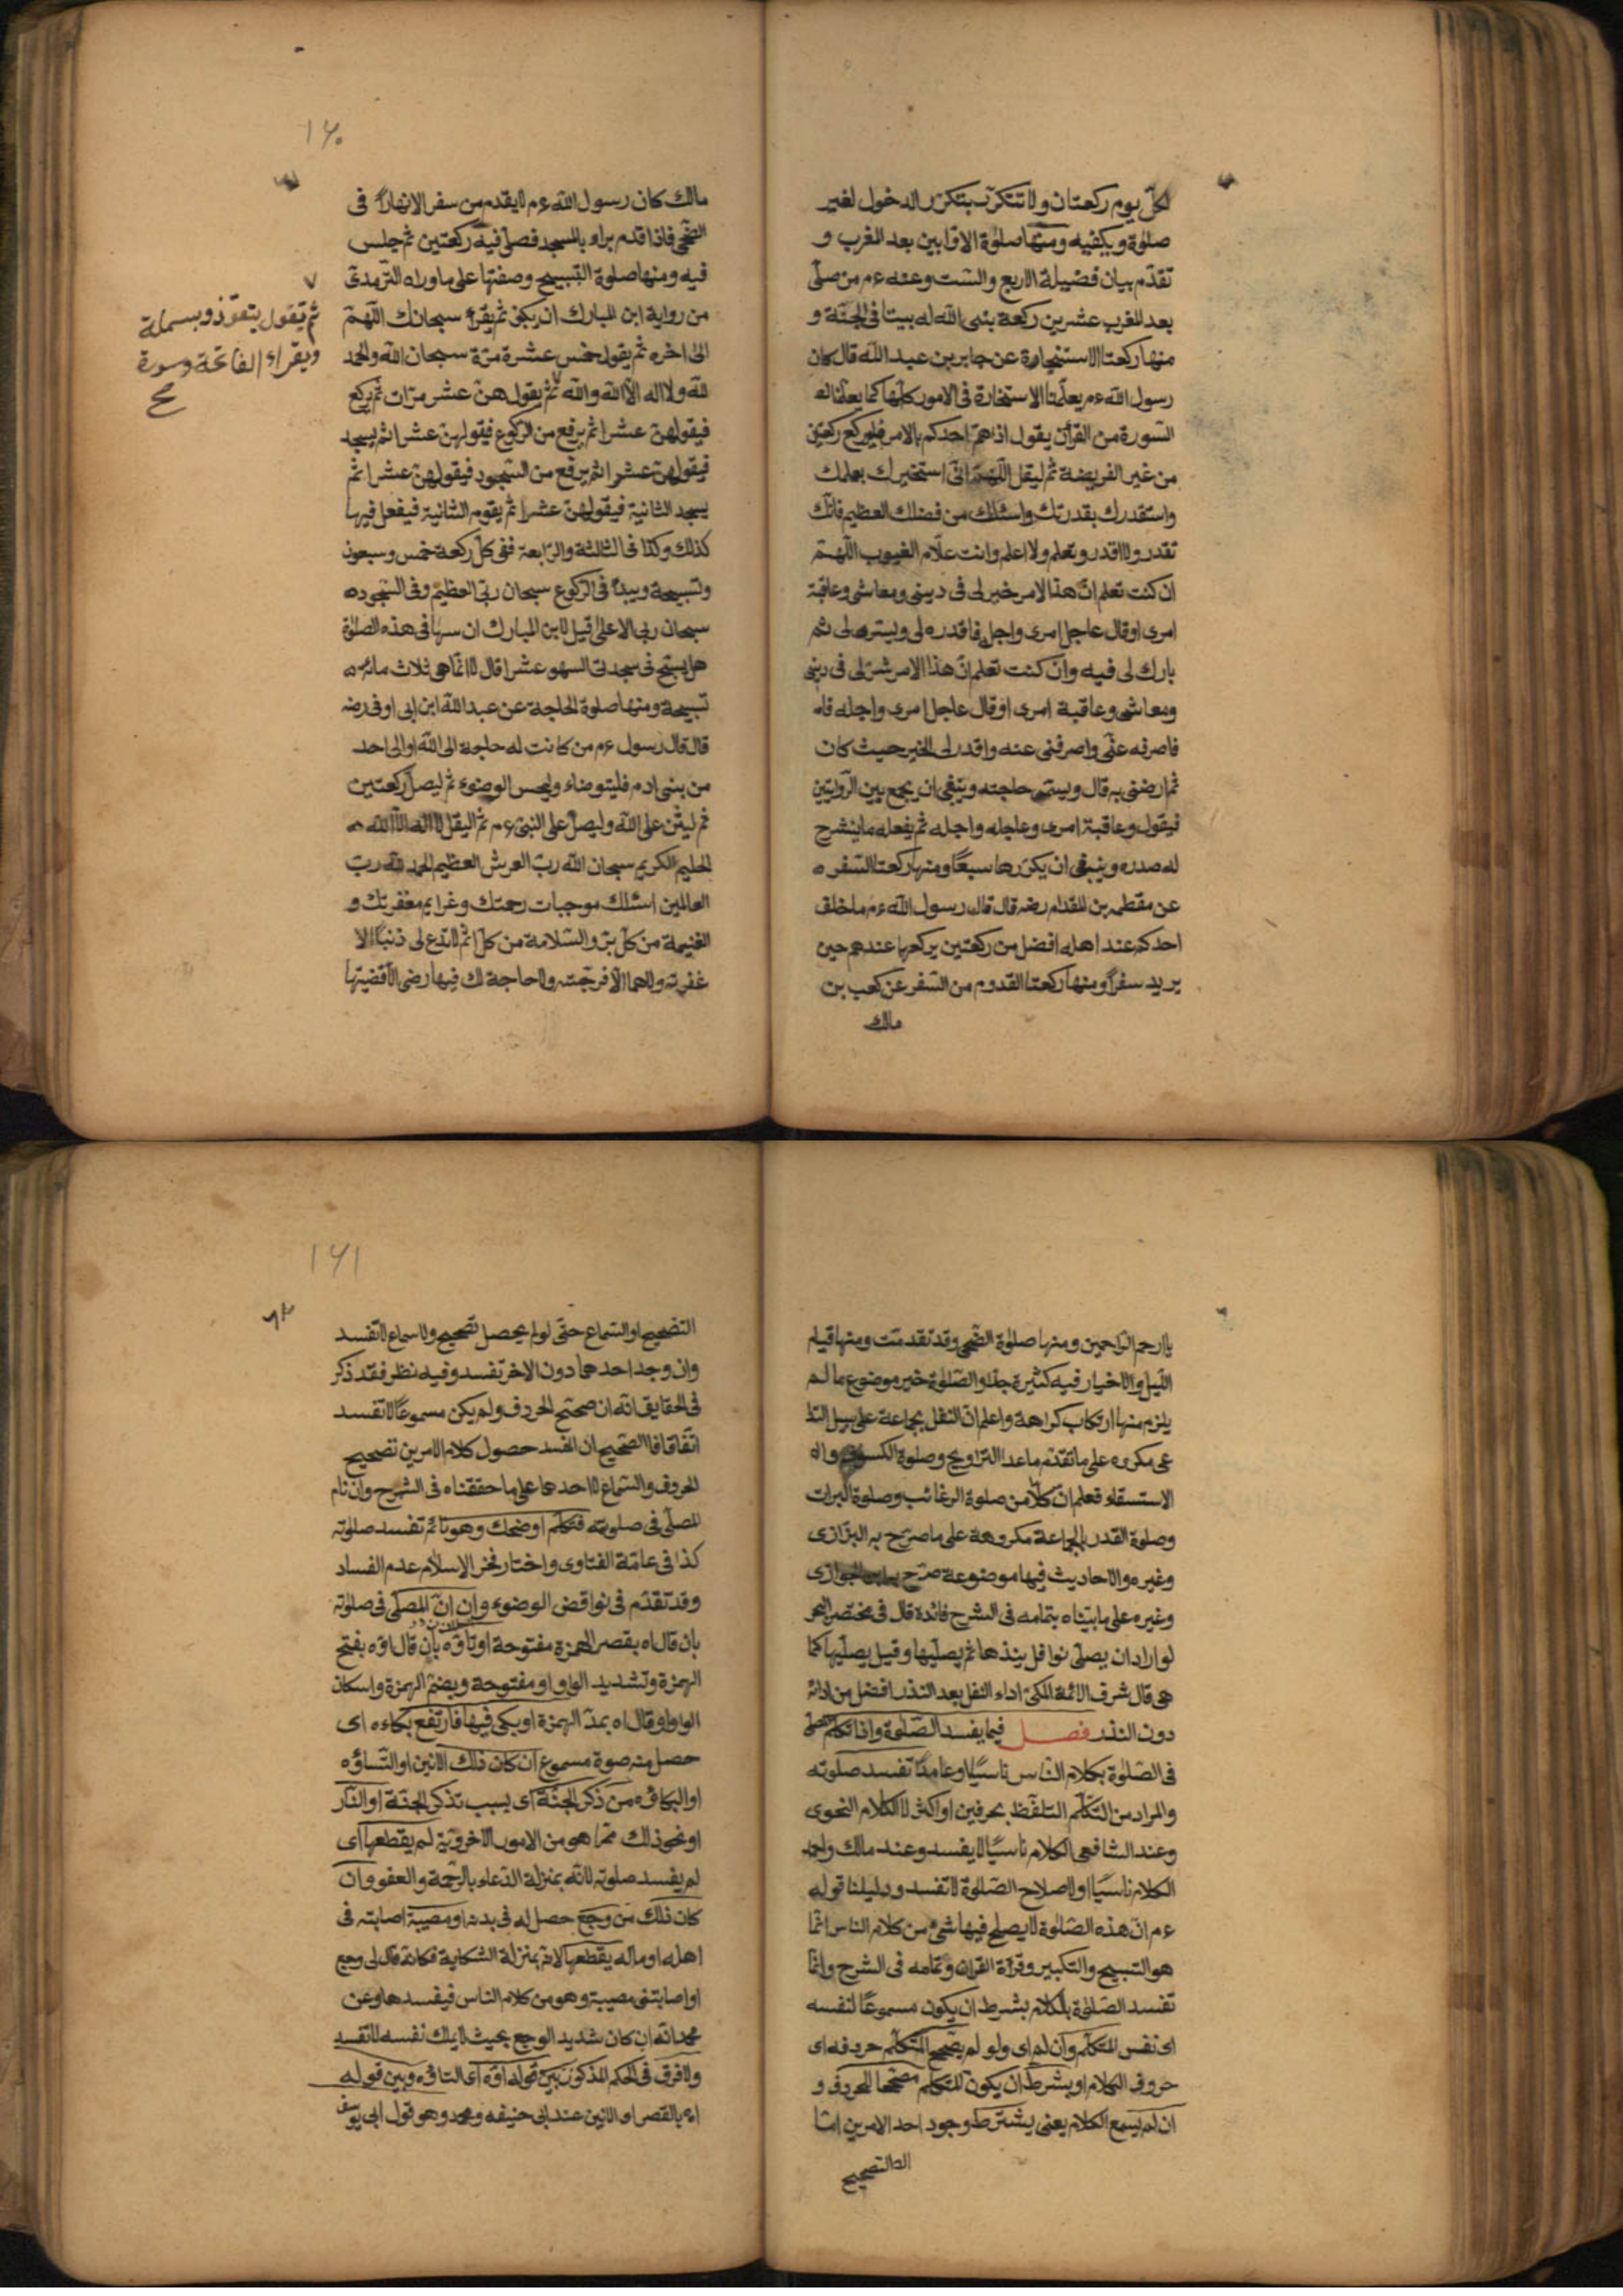 لكل يوم ركعتان ولا تتكرر بتكرر الدخول لغير
صلوة ويكفيه ومنها صلوة الاوابين بعد المغرب و
تقدم بيان فضيلة الاربع والست وعنه ءم من صلى
بعد المغرب عشرين ركعة بنى الله له بيتا فى الجنة و
منها ركعتا الاستخارة عن جابر بن عبد الله قال كان
رسول الله ءم يعلمنا الاستخارة فى الامور كلها كما يعلمنا
السورة من القرأن يقول اذا هم احدكم بالامر فليركع ركعتين
من غير الفريضة ثم ليقل اللهم انى استخيرك بعلمك
واستقدرك بقدرتك واسئلك من فضلك العظيم فانك
تقدر ولا اقدر وتعلم ولا اعلم وانت علام الغيوب اللهم
ان كنت تعلم ان هذا الامر خير لى فى دينى ومعاشى وعاقبة
امرى او قال عاجل امرى واجله فاقدره لى ويسره لى ثم
بارك لى فيه وان كنت تعلم ان هذا الامر شر لى فى دينى
ومعاشى وعاقبة امرى او قال عاجل امرى واجله
فاصرفه عنى واصرفنى عنه واقدر لى الخير حيث كان
ثم ارضنى به قال ويسمى حاجته وينبغى ان يجمع بين الروايتين
فيقول وعاقبة امرى وعاجله واجله ثم يفعله ما ينشرح
له صدره وينبغى ان يكررها سبعا ومنها ركعتا السفر
عن مقطم بن المقدام رضه قال قال رسول الله ءم ما خلف
احدكم عند اهله افضل من ركعتين يركعها عندهم حين
يريد سفرا ومنها ركعتا القدوم من السفر عن كعب بن
مالك
١٦٠
مالك كان رسول الله ءم لا يقدم من سفر الا نهارا فى
الضحى فاذا قدم بداء بالمسجد فصلى فيه ركعتين ثم جلس
فيه ومنها صلوة التسبيح وصفتها على ما وراه الترمدى
من رواية ابن المبارك ان يكبر ثم يقرأ سبحانك اللهم
الى اخره ثم يقول خمس عشرة مرة سبحان الله والحمد
لله ولا اله الا الله والله ثم يقول هن عشر مرات ثم يركع
فيقولهن عشرا ثم يرفع من الركوع فيقولهن عشرا ثم يسجد
فيقولهن عشرا ثم يرفع من السجود فيقولهن عشرا ثم
يسجد الثانية فيقولهن عشرا ثم يقوم الثانية فيفعل فيها
كذلك وكذا فى الثالثة والرابعة ففى كل ركعة خمس وسبعون
وتسبيحة ويبدأ فى الركوع سبحان ربى العظيم وفى السجود
سبحان ربى الاعلى قيل لابن المبارك ان سها فى هذه الصلوة
هل يسبح فى سجدتى السهو عشرا قال لا انما هى ثلاث مائه
تسبيحة ومنها صلوة الحاجة عن عبد الله ابن ابى اوفى رضه
قال قال رسول ءم من كانت له حاجة الى الله او الى احد
من بنى ادم فليتوضاء وليحس الوضوء ثم ليصل ركعتين
ثم ليثن على الله وليصل على النبى ءم ثم اليقل لا اله الا الله
الحليم الكريم سبحان الله رب العرش العظيم الحمد لله رب
العالمين اسئلك موجبات رحمتك وغرايم مغفرتك و
الغنيمة من كل بر والسلامة من كل اثم لا تدع لى ذنبا الا
غفرته ولا هما الا فرجته ولا حاجة لك فيها رضى الا قضيتها
ثم يقول يتعوذ وبسملة
ويقراء الفاتحة وسورة
يا ارحم الراحمين ومنها صلوة الضحى وقد تقدمت ومنها قيام
الليل والاخيار فيه كثيرة جدا والصلوة خير موضوع ما لم
يلزم منها ارتكاب كراهة واعلم ان النفل بجماعة على سبيل التدا
عى مكروه على ما تقدم ماعدا التراويح وصلوة الكسوف و
الاستسقاء فعلم ان كلا من صلوة الرغائب وصلوة البرات
وصلوة القدر بالجماعة مكروهة على ما صرح به البزازى
وغيره والاحاديث فيها موضوعة صرح الجوازى
وغيره على ما بيناه بتمامه فى الشرح فائدة قال فى مختصر البحر
لو اراد ان يصلى نوافل ينذرها ثم يصليها وقيل يصليها كما
هى قال شرف الائمة المكى اداء النفل بعد النذر افضل من ادائه
دون النذر فصل فيما يفسد الصلوة واذا تكلم
فى الصلوة بكلام الناس ناسيا او عامدا تفسد صلوته
والمراد من التكلم التلفظ بحرفين او اكثر لا الكلام النحوى
وعند الشافعى الكلام ناسيا لا يفسد وعند مالك واحمد
الكلام ناسيا او لاصلاح الصلوة لا تفسد ودليلنا قوله
ءم ان هذه الصلوة لا يصلح فيها شئ من كلام الناس انما
هو التسبيح والتكبير وقرأة القران وتمامه فى الشرح وانما
تفسد الصلوة بالكلام بشرط ان يكون مسموعا لنفسه
اى نفس المتكلم وان لم اى ولو لم يصحح المتكلم حروفه اى
حروف الكلام او بشرط ان يكون المتكلم مصححا للحروف و
ان لم يسمع الكلام يعنى يشترط وجود احد الامرين اما
التصحيح
١٦١
التصحيح او السماع حتى لو لم يحصل تصحيح ولا سماع لا تفسد
وان وجد احدهما دون الاخر تفسد وفيه نظر فقد ذكر
فى الحقايق انه ان صحح الحروف ولم يكن مسموعا لا تفسد
اتفاقا فالصحيح ان المفسد حصول كلام الامرين تصحيح
الحروف والسماع لا احدهما على ما حققناه فى الشرح وان نام
المصلى فى صلوته فتكلم او ضحك وهو نائم تفسد صلوته
كذا فى عامة الفتاوى واختار فخر الاسلام عدم الفساد
وقد تقدم فى نواقض الوضوء وان ان المصلى فى صلوته
بان قال اه بقصر الهمزة مفتوحة او تاوه بان قال اوه بفتح
الهمزة وتشديد الواو مفتوحة وبضم الهمزة واسكان
الواو او قال اه بمد الهمزة او بكى فيها فارتفع بكاءه اى
حصل منه صوة مسموع ان كان ذلك الانين او التساؤه
او البكاؤه من ذكر الجنة اى بسبب تذكر الجنة او النار
او نحو ذلك مما هو من الامور الاخروية لم يقطعها اى
لم يفسد صلوته لانه بمنزلة الدعاء بالرحمة والعفو وان
كان ذلك من وجع حصل له فى بدنه او مصيبة اصابته فى
اهله او ماله يقطعها لانه بمنزلة الشكاية فكانه قال لى وجع
او اصابتنى مصيبة وهو من كلام الناس فيفسدها وعن
محمد انه ان كان شديد الوجع بحيث لا يملك نفسه لا تفسد
ولا فرق فى الحكم المذكور بين قوله اوه اى التاوه وبين قوله
اه بالقصر او الانين عند ابى حنيفه ومحمد وهو قول ابى يوسف